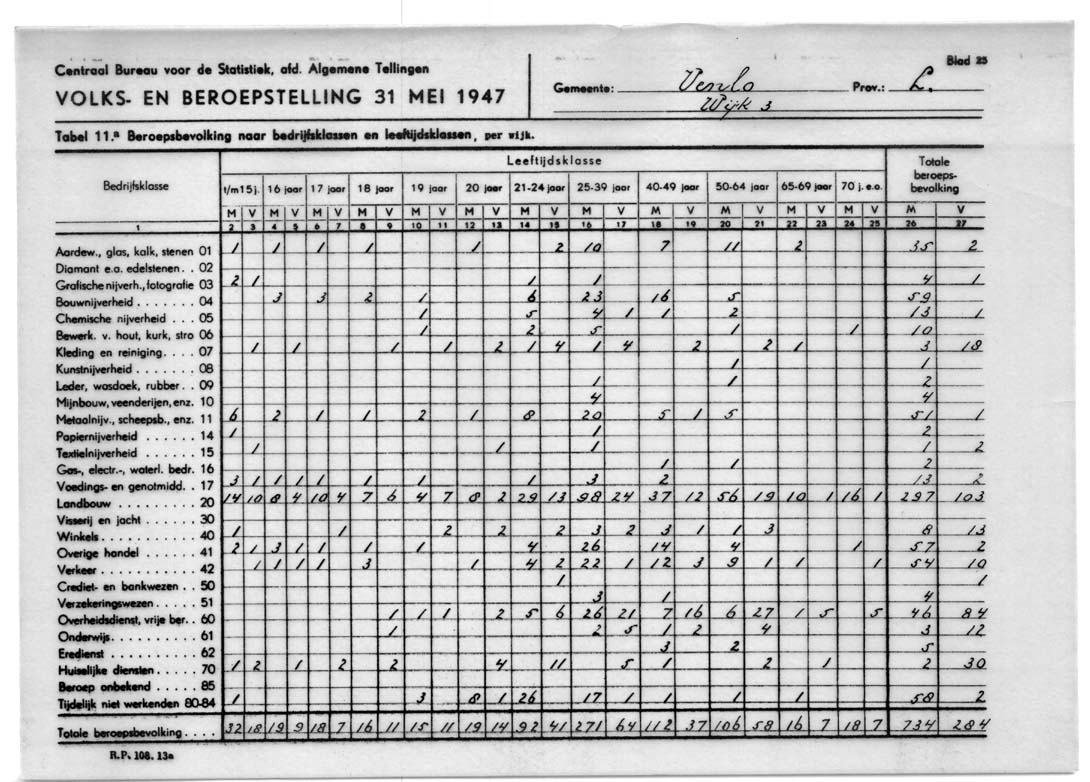 Blad 25
Centraal Bureau voor de Statistiek, afd. Algemene Tellingen
VOLKS- EN BEROEPSTELLING 31 MEI 1947
Gemeente: Venlo Prov.: L.
Wijk 3
Tabel 11.a Beroepsbevolking naar bedrijfsklassen en leeftijdsklassen, per wijk.
Bedrijfsklasse Leeftijdsklasse Totale beroeps-bevolking
t/m15 j. 16 jaar 17 jaar 18 jaar 19 jaar 20 jaar 21-24 jaar 25-39 jaar 40-49 jaar 50-64 jaar 65-69 jaar 70 j. e.o.
M V M V M V M V M V M V M V M V M V M V M V M V M V
1 2 3 4 5 6 7 8 9 10 11 12 13 14 15 16 17 18 19 20 21 22 23 24 25 26 27
Aardew., glas, kalk, stenen 01 1 1 1 1 1 2 10 7 11 2 35 2
Diamant e.a. edelstenen . . 02
Grafische nijverh., fotografie 03 2 1 1 1 4 1
Bouwnijverheid . . . . . . . 04 3 3 2 1 6 23 16 5 59
Chemische nijverheid . . . 05 1 5 4 1 1 2 13 1
Bewerk. v. hout, kurk, stro 06 1 2 5 1 1 10
Kleding en reiniging. . . . 07 1 1 1 1 2 1 4 1 4 2 2 1 3 18
Kunstnijverheid . . . . . . . 08 1 1
Leder, wasdoek, rubber . . 09 1 1 2
Mijnbouw, veenderijen, enz. 10 4 4
Metaalnijv., scheepsb., enz. 11 6 2 1 1 2 1 8 20 5 1 5 51 1
Papiernijverheid . . . . . . 14 1 1 2
Textielnijverheid . . . . . . 15 1 1 1 1 2
Gas-, electr.-, waterl. bedr. 16 1 1 2
Voedings- en genotmidd. . . 17 3 1 1 1 1 1 1 1 3 2 13 2
Landbouw . . . . . . . . . 20 14 10 8 4 10 4 7 6 4 7 8 2 29 13 98 24 37 12 56 19 10 1 16 1 297 103
Visserij en jacht . . . . . . 30
Winkels . . . . . . . . . . 40 1 1 2 2 2 3 2 3 1 1 3 8 13
Overige handel . . . . . . 41 2 1 3 1 1 1 1 4 26 14 4 1 57 2
Verkeer . . . . . . . . . . 42 1 1 1 1 3 1 4 2 22 1 12 3 9 1 1 1 54 10
Crediet- en bankwezen . . 50 1 1
Verzekeringswezen . . . . . 51 3 1 4
Overheidsdienst, vrije ber. . 60 1 1 1 2 5 6 26 21 7 16 6 27 1 5 5 46 84
Onderwijs. . . . . . . . . . 61 1 2 5 1 2 4 3 12
Eredienst . . . . . . . . . 62 3 2 5
Huiselijke diensten . . . . . 70 1 2 1 2 2 4 11 5 1 2 1 2 30
Beroep onbekend . . . . . 85
Tijdelijk niet werkenden 80-84 1 3 8 1 26 17 1 1 1 1 58 2
Totale beroepsbevolking . . . . 32 18 19 9 18 7 16 11 15 11 19 14 92 41 271 64 112 37 106 58 16 7 18 7 734 284
R.P. 108. 13a